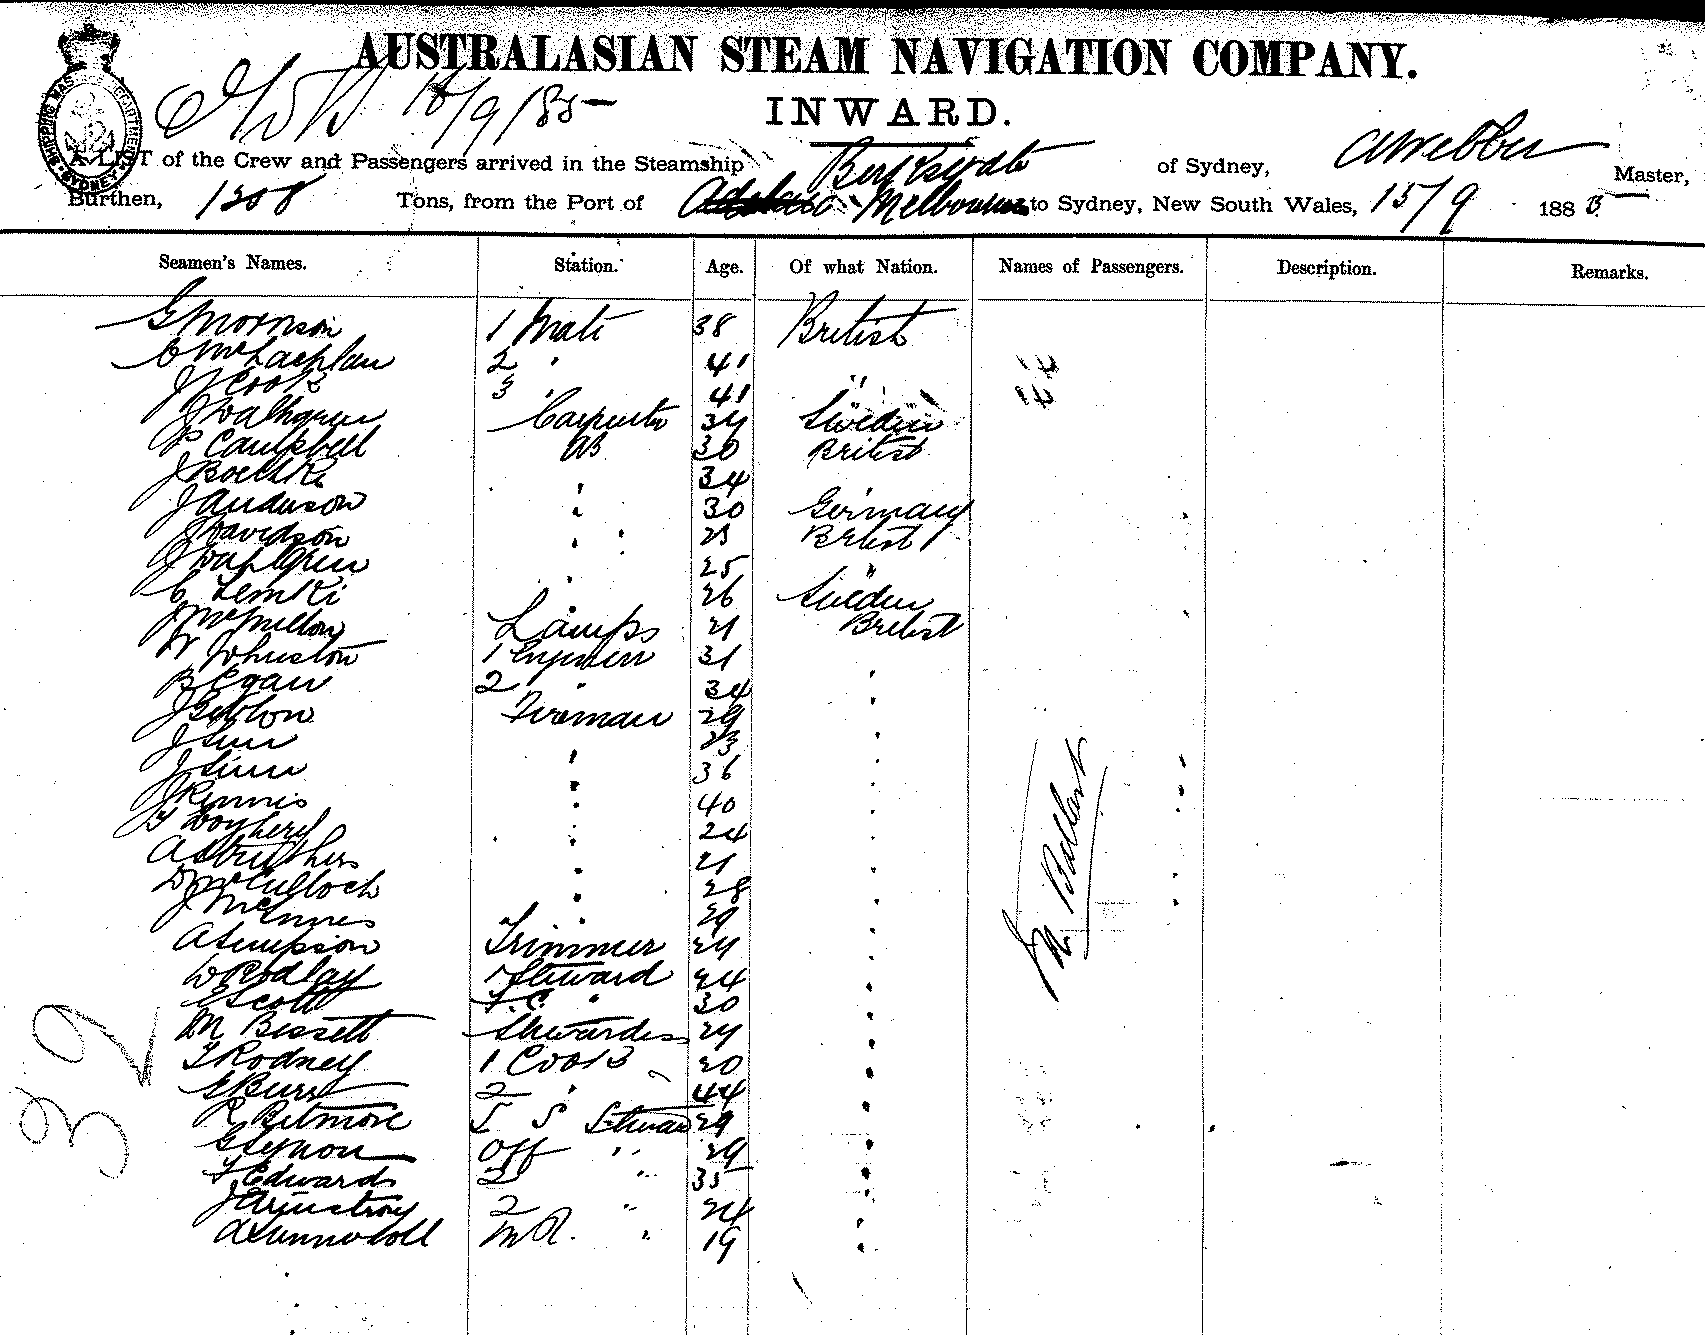 AUSTRALASIAN STEAM NAVIGATION COMPANY.
16/9/85
INWARD.
A LIST of the Crew and Passengers arrived in the Steamship of Sydney, A Webber Master,
Burthen, 1308 Tons, from the Port of Melbourne to Sydney, New South Wales, 15/9 1885
Seamen's Names. Station. Age. Of what Nation. Names of Passengers. Description. Remarks.
G Morrison 1 Mate 38 British
C McLachlan 2 " 41
J Cook 3 " 41 "
J Walhgren Carpenter 34 Sweden
P Campbell AB 30 British
J 34
J Anderson " 30 Germany
J Davidson " 23 British
J Wahlgren 25 "
C Lemki " 26 Sweden
J McMillon Lamps 21 British
W Johnston 1 Engineer 31
B Egan 2 " 34 "
J Fireman 29 "
J 23 "
J " 36 "
J Rennis " 40 "
24 "
A Struthers " 21 "
D McCulloch " 28 "
J McInnes " 29 "
A Simpson Trimmer 24 "
D Rodlay Steward 24 "
E Scott F.C. " 30 "
M Bissett Stewardess 24 "
T Rodney 1 Cook 20 "
E Burr 2 " 44 "
R Bitmore S S Steward 29 "
G Eynon Off " 29 "
T Edwards 2 " 35 "
J Armstrong 2 " 24 "
A MR. " 19 "
In Ballast
32